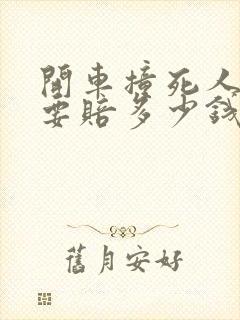 開車撞死人
要賠多少錢
舊月安好